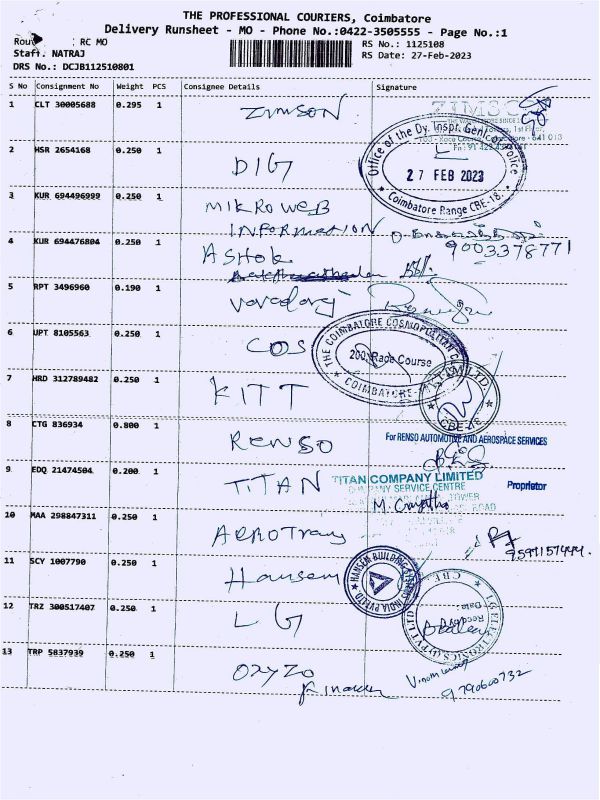 THE PROFESSIONAL COURIERS, Coimbatore
Delivery Runsheet - MO - Phone No.:0422-3505555 - Page No.:1
RC MO
RS No.: 1125108
Staff. NATRAJ
RS Date: 27-Feb-2023
DRS No.: DCJB112510801
S No Consignment No Weight PCS Consignee Details Signature
1 CLT 30005688 0.295 1 ZIMSON
2 HSR 2654168 0.250 1 DIG
Office of the Dy. Inspr. Genl. of Police
27 FEB 2023
Coimbatore Range CBE-18.
3 KUR 694496999 0.250 1 MIKROWEB
INFORMATION
9003378771
4 KUR 694476804 0.250 1 ASHOK
5 RPT 3496960 0.190 1 Varadaraj
6 UPT 8105563 0.250 1 COS
THE COIMBATORE COSMOPOLITAN
200, Race Course
COIMBATORE
7 HRD 312789482 0.250 1 KITT
LIMITED
CBE
8 CTG 836934 0.800 1 RENSO
For RENSO AUTOMOTIVE AND AEROSPACE SERVICES
Proprietor
9 EDQ 21474504 0.200 1 TITAN
TITAN COMPANY LIMITED
COMPANY SERVICE CENTRE
TOWER
ROAD
10 MAA 298847311 0.250 1 AEROTrans
11 SCY 1007790 0.250 1 Hansem
HANSEM BUILDING
INDIA PVT LTD
12 TRZ 300517407 0.250 1 LG
LG ELECTRONICS
PVT LTD
CBE
13 TRP 5837939 0.250 1 OXYZO
9790600732